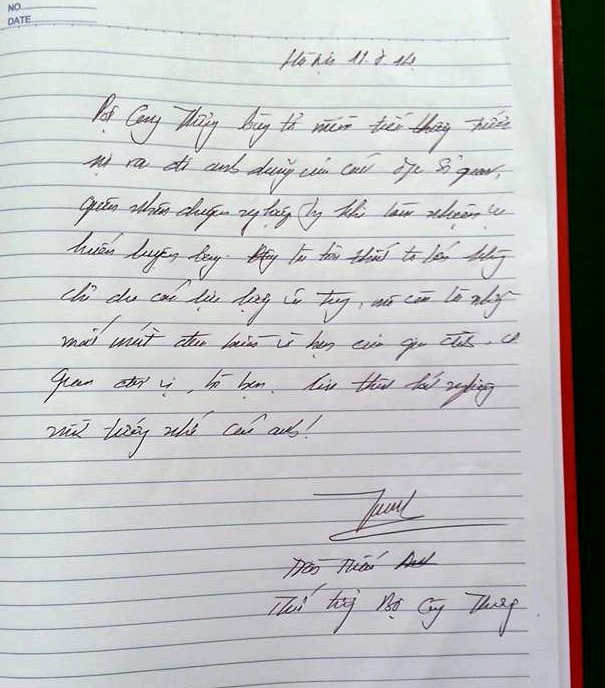 NO.
DATE
Hà Nội 11.7.14
Bộ Công Thương bày tỏ niềm tiếc thương trước
sự ra đi anh dũng của các đ/c sĩ quan,
quân nhân chuyên nghiệp khi làm nhiệm vụ
huấn luyện bay. Đây là tổn thất to lớn không
chỉ cho các lực lượng vũ trang, mà còn là những
mất mát của gia đình, cơ
quan đơn vị, bè bạn. Xin thắp nén nhang
tưởng nhớ các anh!
Trần Tuấn Anh
Thứ trưởng Bộ Công Thương